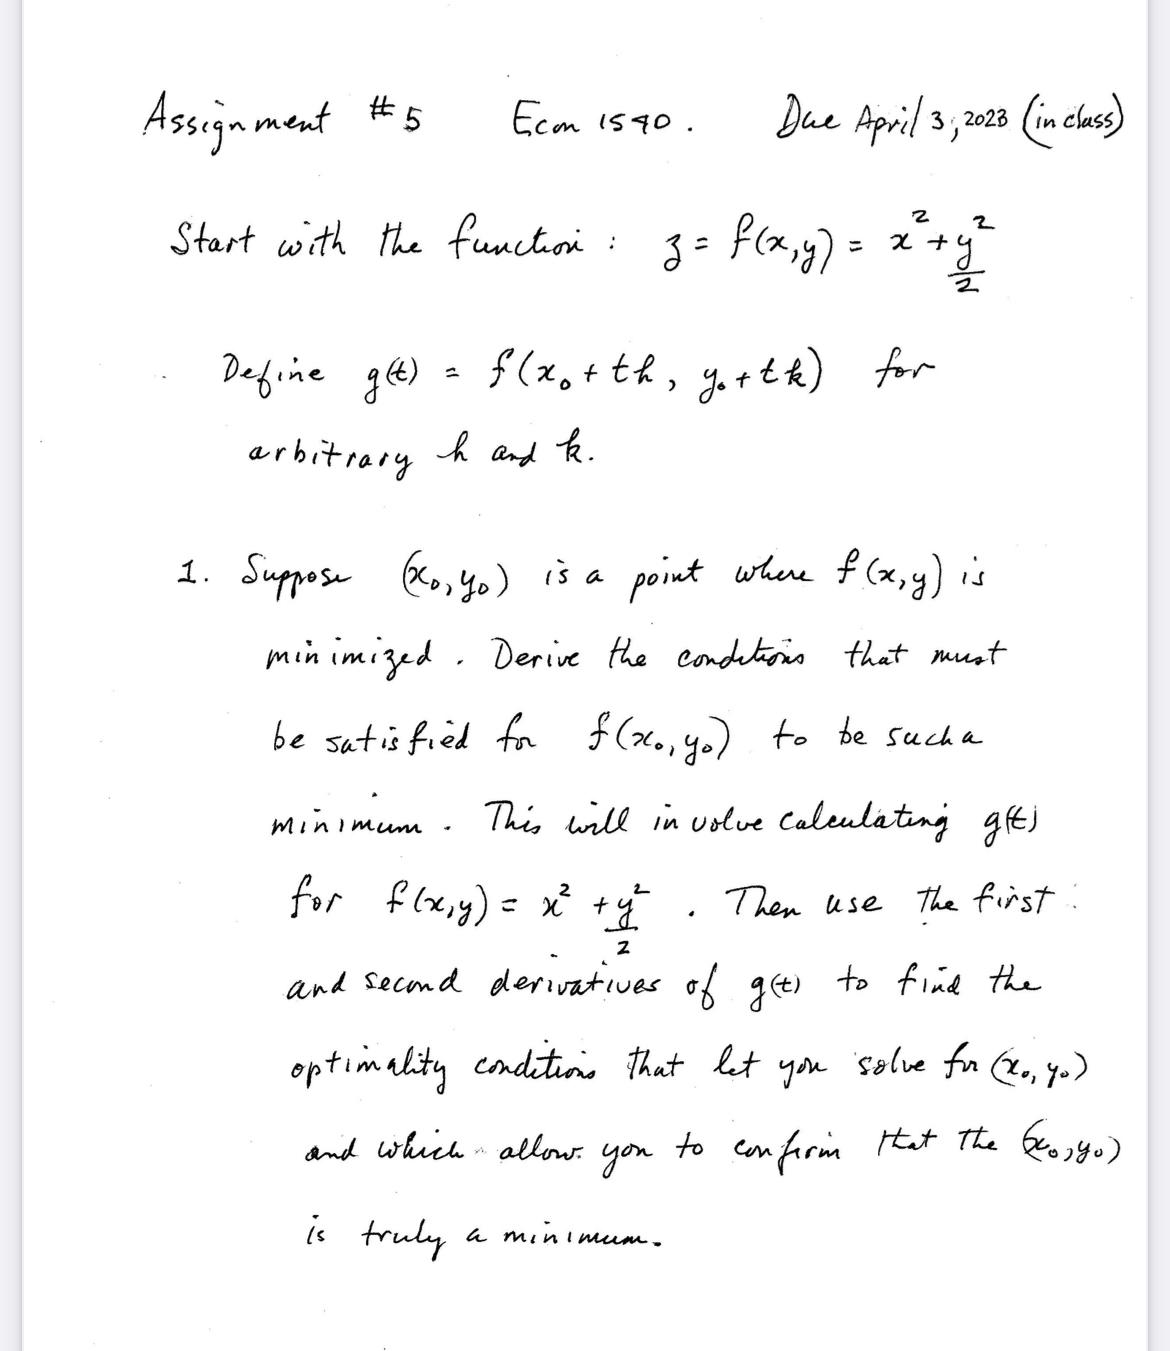 Assignment #5 Econ 1540. Due April 3, 2023 (in class)
Start with the function : z = f(x,y) = x² + y²/2
Define g(t) = f(x₀ + th, y₀ + tk) for
arbitrary h and k.
1. Suppose (x₀, y₀) is a point where f(x,y) is
minimized. Derive the conditions that must
be satisfied for f(x₀, y₀) to be such a
minimum. This will involve calculating g(t)
for f(x,y) = x² + y²/2 . Then use the first
and second derivatives of g(t) to find the
optimality conditions that let you solve for (x₀, y₀)
and which allow you to confirm that the (x₀, y₀)
is truly a minimum.